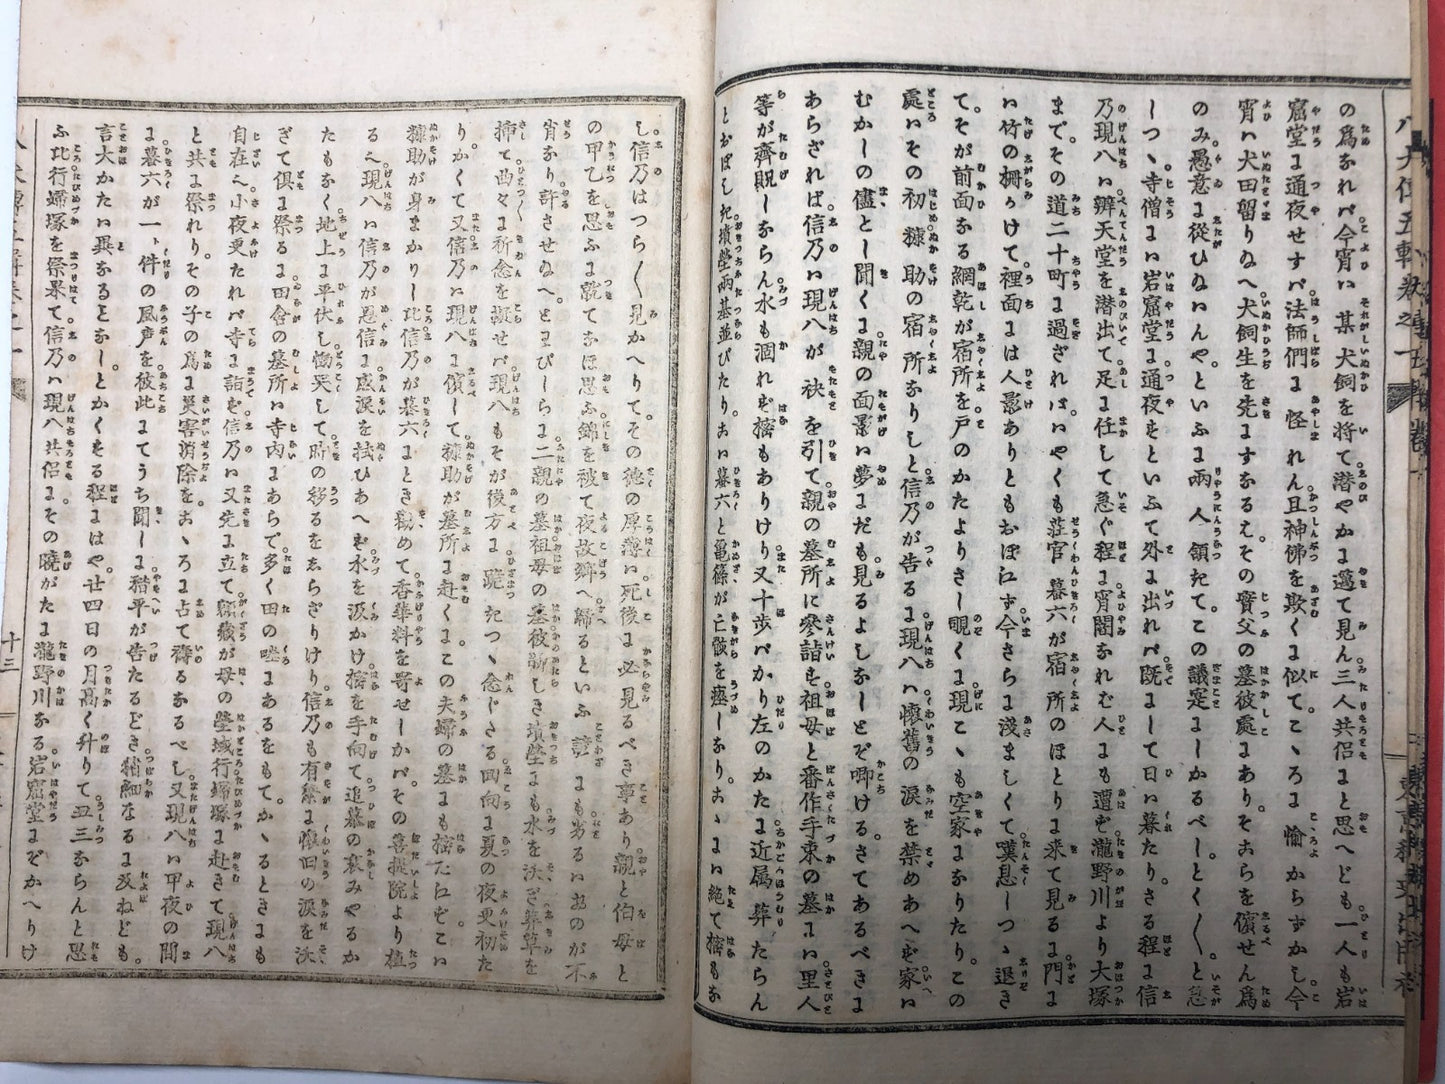 八犬傳五輯卷之一
の爲なれバ今宵ハ某犬飼を將て潜やかに邁て見ん三人共侶にと思へども一人も岩
窟堂に通夜せずバ法師們に怪れん且神佛を欺くに似てこゝろに愉からずかし今
宵ハ犬田留りねへ犬飼生を先にすなるえその實父の墓彼處にあり。そならを儐せん爲
のみ愚意に從ひねいんや。といふに兩人領きて。この議定にしかるべしとく〳〵と急
しつゝ寺僧にハ岩窟堂に通夜をといふて外に出れバ既にして日ハ暮たりさる程に信
乃現八ハ辨天堂を潜出て足に任して急ぐ程に宵闇なれむ人にも遭ず瀧野川より大塚
まで。その道二十町に過ざれバ。いやくも莊官暮六が宿所のほとりに来て見るに門に
ハ竹の柵かけて裡面には人影ありともおぼえず今さらに淺ましくて嘆息しつゝ退き
て。そが前面なる網乾が宿所を戸のかたよりさし覗くに現こゝも空家になりたり。この
處ハその初糠助の宿所なりしと信乃が告るに現八ハ懷舊の涙を禁めあへず家ハ
むかしの儘とし聞くに親の面影ハ夢にだも見るよしなしとぞ啣ける。さてあるべきに
あらざれば信乃ハ現八が袂を引て親の墓所に參詣を祖母と番作手束の墓にハ里人
等が齊眦しならん水も涸れず樒もありけり又十歩バかり左のかたに近属葬たらん
とおぼしき墳塋兩基並びたり。おハ暮六と龜篠が亡骸を瘞しなり。おゝにハ絕て樒もな
し信乃はつら〳〵見かへりて。その德の厚薄ハ死後に必見るべき事あり親と伯母と
の甲乙を思ふに就てなほ思ふ錦を被て夜故鄕へ歸るといふ諺にも劣るハおのが不
肖なり許させねへ。とにびしらに二親の墓祖母の墓彼新しき墳塋にも水を沃ぎ葬草を
揷て曲々に祈念を凝せバ現八もそが後方に跪きつゝ念じさる回向に夏の夜更初た
りかくて又信乃ハ現八に儐して糠助が墓所に赴くに。この夫婦の墓にも樒たえず。こハ
糠助が身まかりし比信乃が暮六にとき勸めて香華料を寄せしかバ。その菩提院より植
るへ現八ハ信乃が恩信に感涙を拭ひあへず水を汲かけ樒を手向て。追慕の哀みやるか
たもなく地上に平伏し慟哭して時の移るをもらざりけり信乃も有繋に懷旧の涙を沃
ぎて俱に祭るに田舎の墓所ハ寺内にあらで。多く田の畦にあるをもて。かゝるときにも
自在へ小夜更たれバ寺に詣ず信乃ハ又先に立て額藏が母の塋域行婦塚に赴きて現八
と共に祭れり。その子の爲に災害消除を。おゝろに占て禱るなるべし又現八ハ甲夜の間
に暮六が一ト件の風声を彼此にてうち聞しに稽平が告たるごとき精細なるに及ねども。
言大かたハ異なるとなし。とかくする程にはや。廿四日の月高く升りて丑三ならんと思
ふ比行婦塚を祭果て信乃ハ現八共侶にその曉がたに瀧野川なる岩窟堂にぞかへりけ
十三